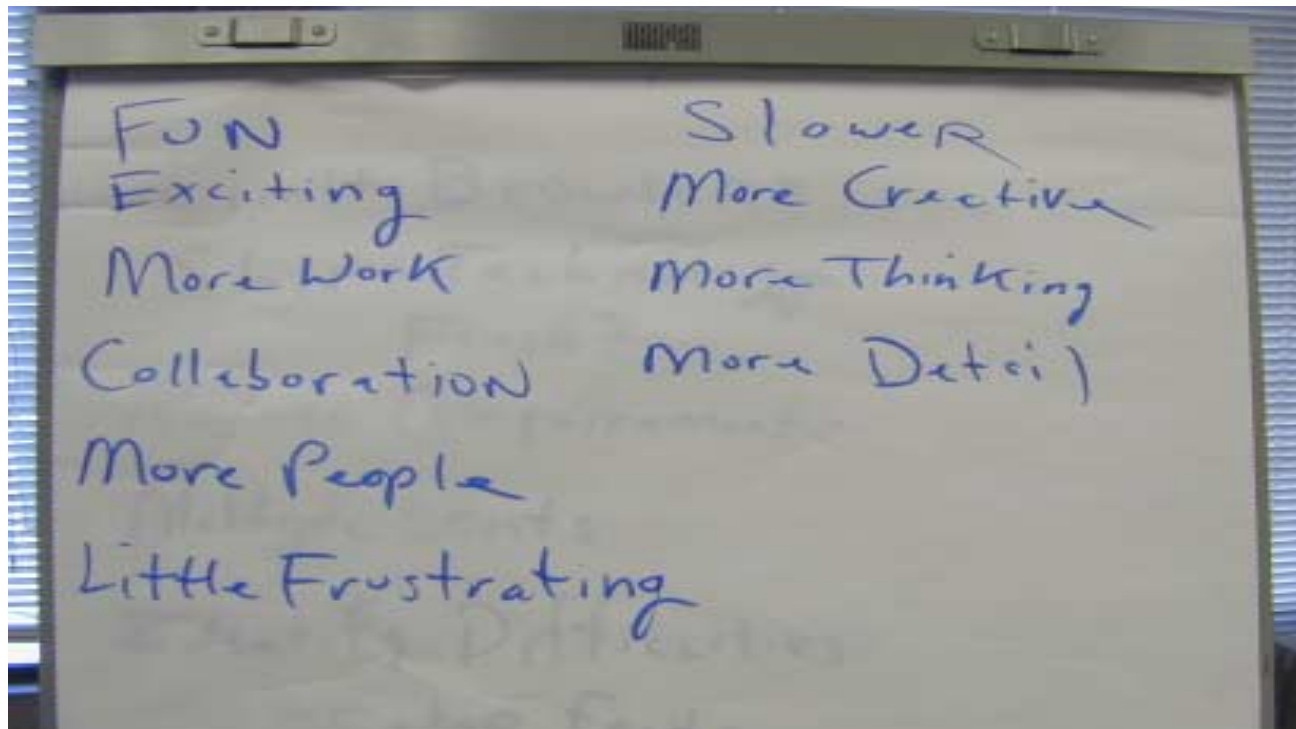 FUN
Exciting
More Work
Collaboration
More People
Little Frustrating
Slower
More Creative
More Thinking
More Detail